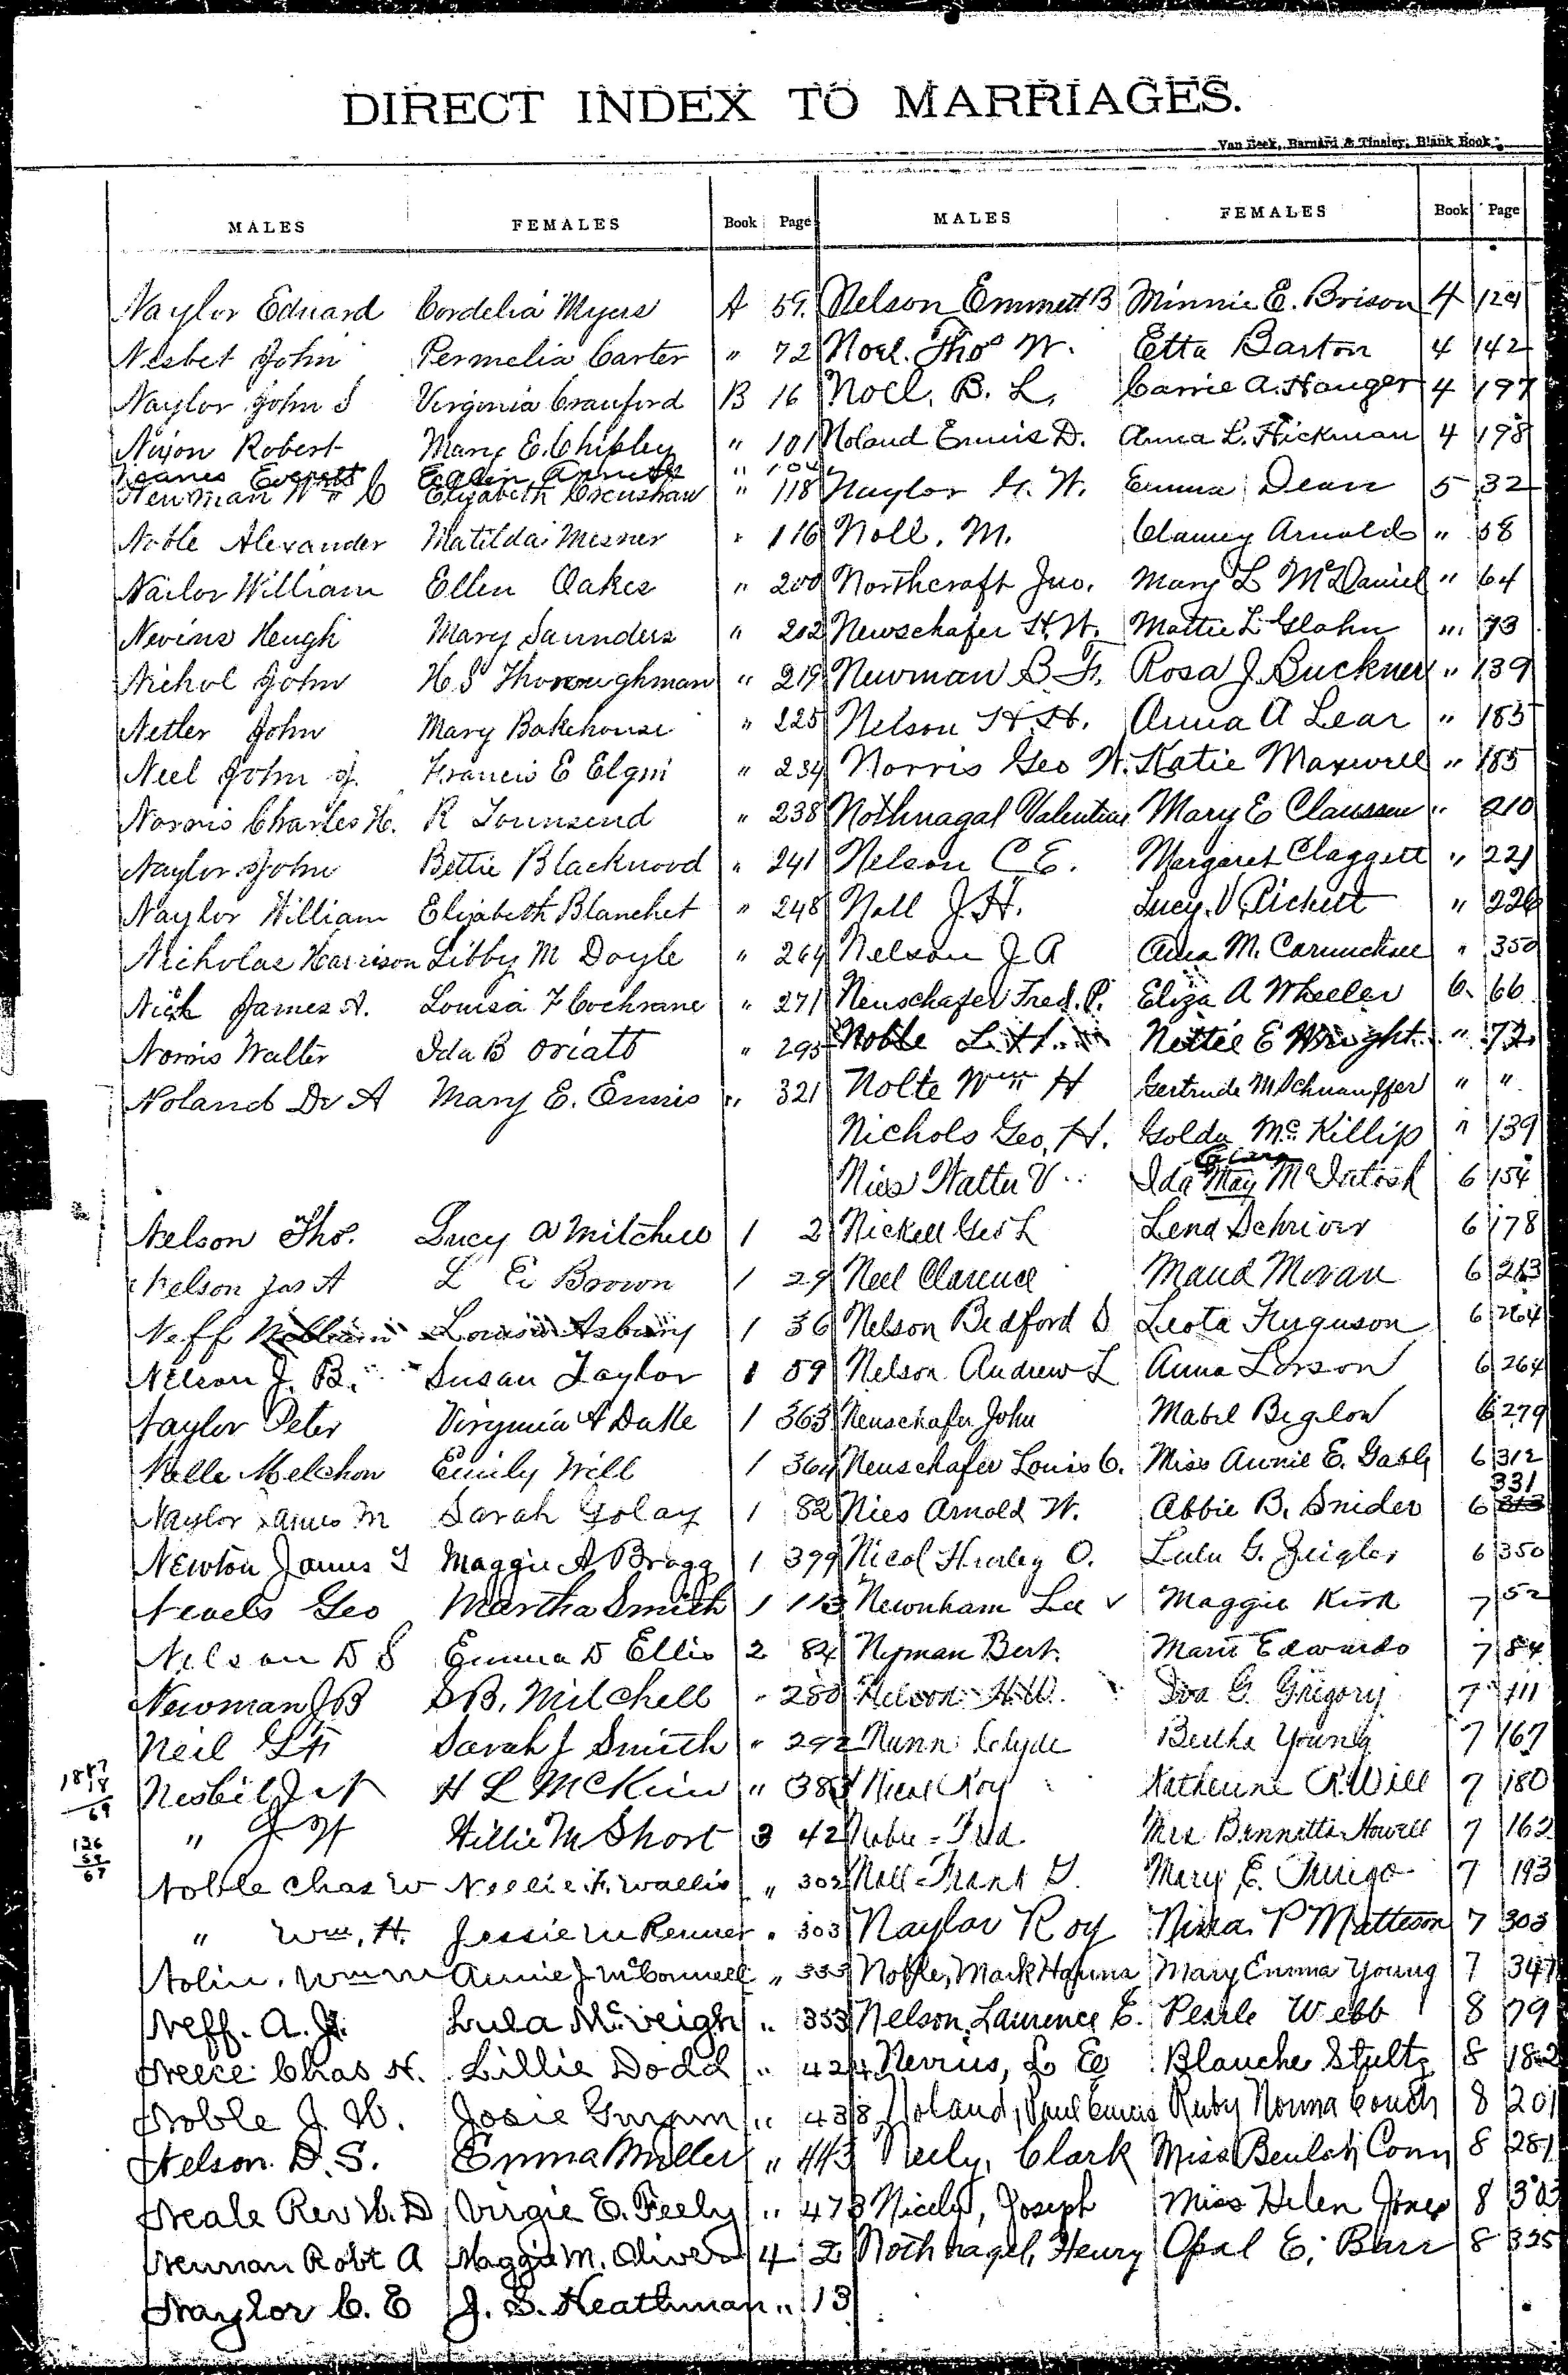 DIRECT INDEX TO MARRIAGES.
Van Beek, Barnard & Tinsley, Blank Book
MALES FEMALES Book Page
Naylor Eduard Cordelia Myers A 59
Nesbet John Permelia Carter " 72
Naylor John S Virginia Crauford B 16
Nixon Robert Mary E. Chipley " 101
Everett " 104
Newman Wm C Elizabeth Crenshaw " 118
Noble Alexander Matilda Mesner " 116
Nailor William Ellen Oakes " 200
Nevins Heugh Mary Saunders " 202
Nichol John H S Thoroughman " 219
Netler John Mary Bakehouse " 225
Neel John J. Francis E Elgin " 234
Norris Charles H. R Tounsend " 238
Naylor John Bettie Blackwood " 241
Naylor William Elizabeth Blanchet " 248
Nicholas Harrison Libby M Doyle " 264
James A. Louisa F Cochrane " 271
Norris Walter Ida B Oriatt " 295
Noland Dr A Mary E. Ennis " 321
Nelson Tho. Lucy A Mitchell 1 2
Nelson Jas A L E Brown 1 29
Neff William Louisa Asbury 1 36
Nelson J. B. Susan Taylor 1 59
Naylor Peter Virginia A 1 363
Nolle Melchon Emily Will 1 364
Naylor James M Sarah Golay 1 82
Newton James T Maggie A Bragg 1 399
Nevels Geo Martha Smith 1 113
Nelson D S Emma D Ellis 2 84
Newman J B S B. Mitchell " 280
Neil Sarah J Smith " 292
1887
18
69
Nesbit J N H L McKim " 383
136
59
67
" J N Willie M Short 3 42
Noble Chas W Nellie F. Wallis " 302
" Wm. H. Jessie M Renner " 303
Nolin, Wm M Annie J McConnell " 333
Neff. A. J. Lula McVeigh " 353
Neece Chas N. Lillie Dodd " 424
Noble J. W. Josie " 438
Nelson D. S. Emma Miller " 443
Neale Rev W. D Virgie E. Feely " 473
Newman Robt A Maggie M. Oliver 4 2
Naylor C. E J. S. Heathman " 13
MALES FEMALES Book Page
Nelson Emmett B Minnie E. Brison 4 124
Noel. Thos W. Etta Barton 4 142
Noel, B. L. Carrie A. Hauger 4 197
Noland Ennis D. Anna L. Hickman 4 198
Naylor G. W. Emma Dean 5 32
Noll, M. Arnold " 58
Northcraft Jno. Mary L McDaniel " 64
Newschafer H. W. Mattie L Glahn " 73
Newman B. F. Rosa J. Buckner " 139
Nelson H. H. Anna A Lear " 183
Norris Geo W. Katie Maxwell " 185
Nothnagal Valentine Mary E Claussen " 210
Nelson C E. Margaret Claggett " 221
Noll J. H. Lucy V Pickett " 226
Nelson J A Ana M. " 350
Neuschafer Fred. P. Eliza A Wheeler 6 66
Noble L. H. Nettie E Wright " 72
Nolte Wm H Gertrude M Schnauffer " "
Nichols Geo. H. Golda McKillip " 139
Nies Walter V Ida May McIntosh 6 154
Nickell Geo L Lena Schriver 6 178
Neel Clarence Maud Moran 6 213
Nelson Bedford D Leota Ferguson 6 264
Nelson Andrew L Anna Larson 6 264
Neuschafer John Mabel Bigelow 6 279
Neuschafer Louis C. Miss Annie E. Gably 6 312
331
Nies Arnold W. Abbie B. Snider 6 313
Nicol Hurley O. Lulu G. Zeigler 6 350
Newnham Lee V Maggie Kirk 7 52
Nyman Bert. Marie Edwards 7 84
Nelson H. W. Iva G. Gregory 7 111
Nunn Clyde Bertha Young 7 167
Roy Katherine R. Will 7 180
Fred Mrs Bennetta Howell 7 162
Noll Frank G. Mary E. 7 193
Naylor Roy Nina P Matteson 7 303
Noble, Mark Hanna Mary Emma Young 7 347
Nelson, Laurence E. Pearle Webb 8 79
Nevius, L. E Blanche Stultz 8 182
Noland, Paul Ennis Ruby Norma Couch 8 201
Neely, Clark Miss Beulah Conn 8 281
Nicely, Joseph Miss Helen Jones 8 303
Nothnagel, Henry Opal E. Barr 8 325